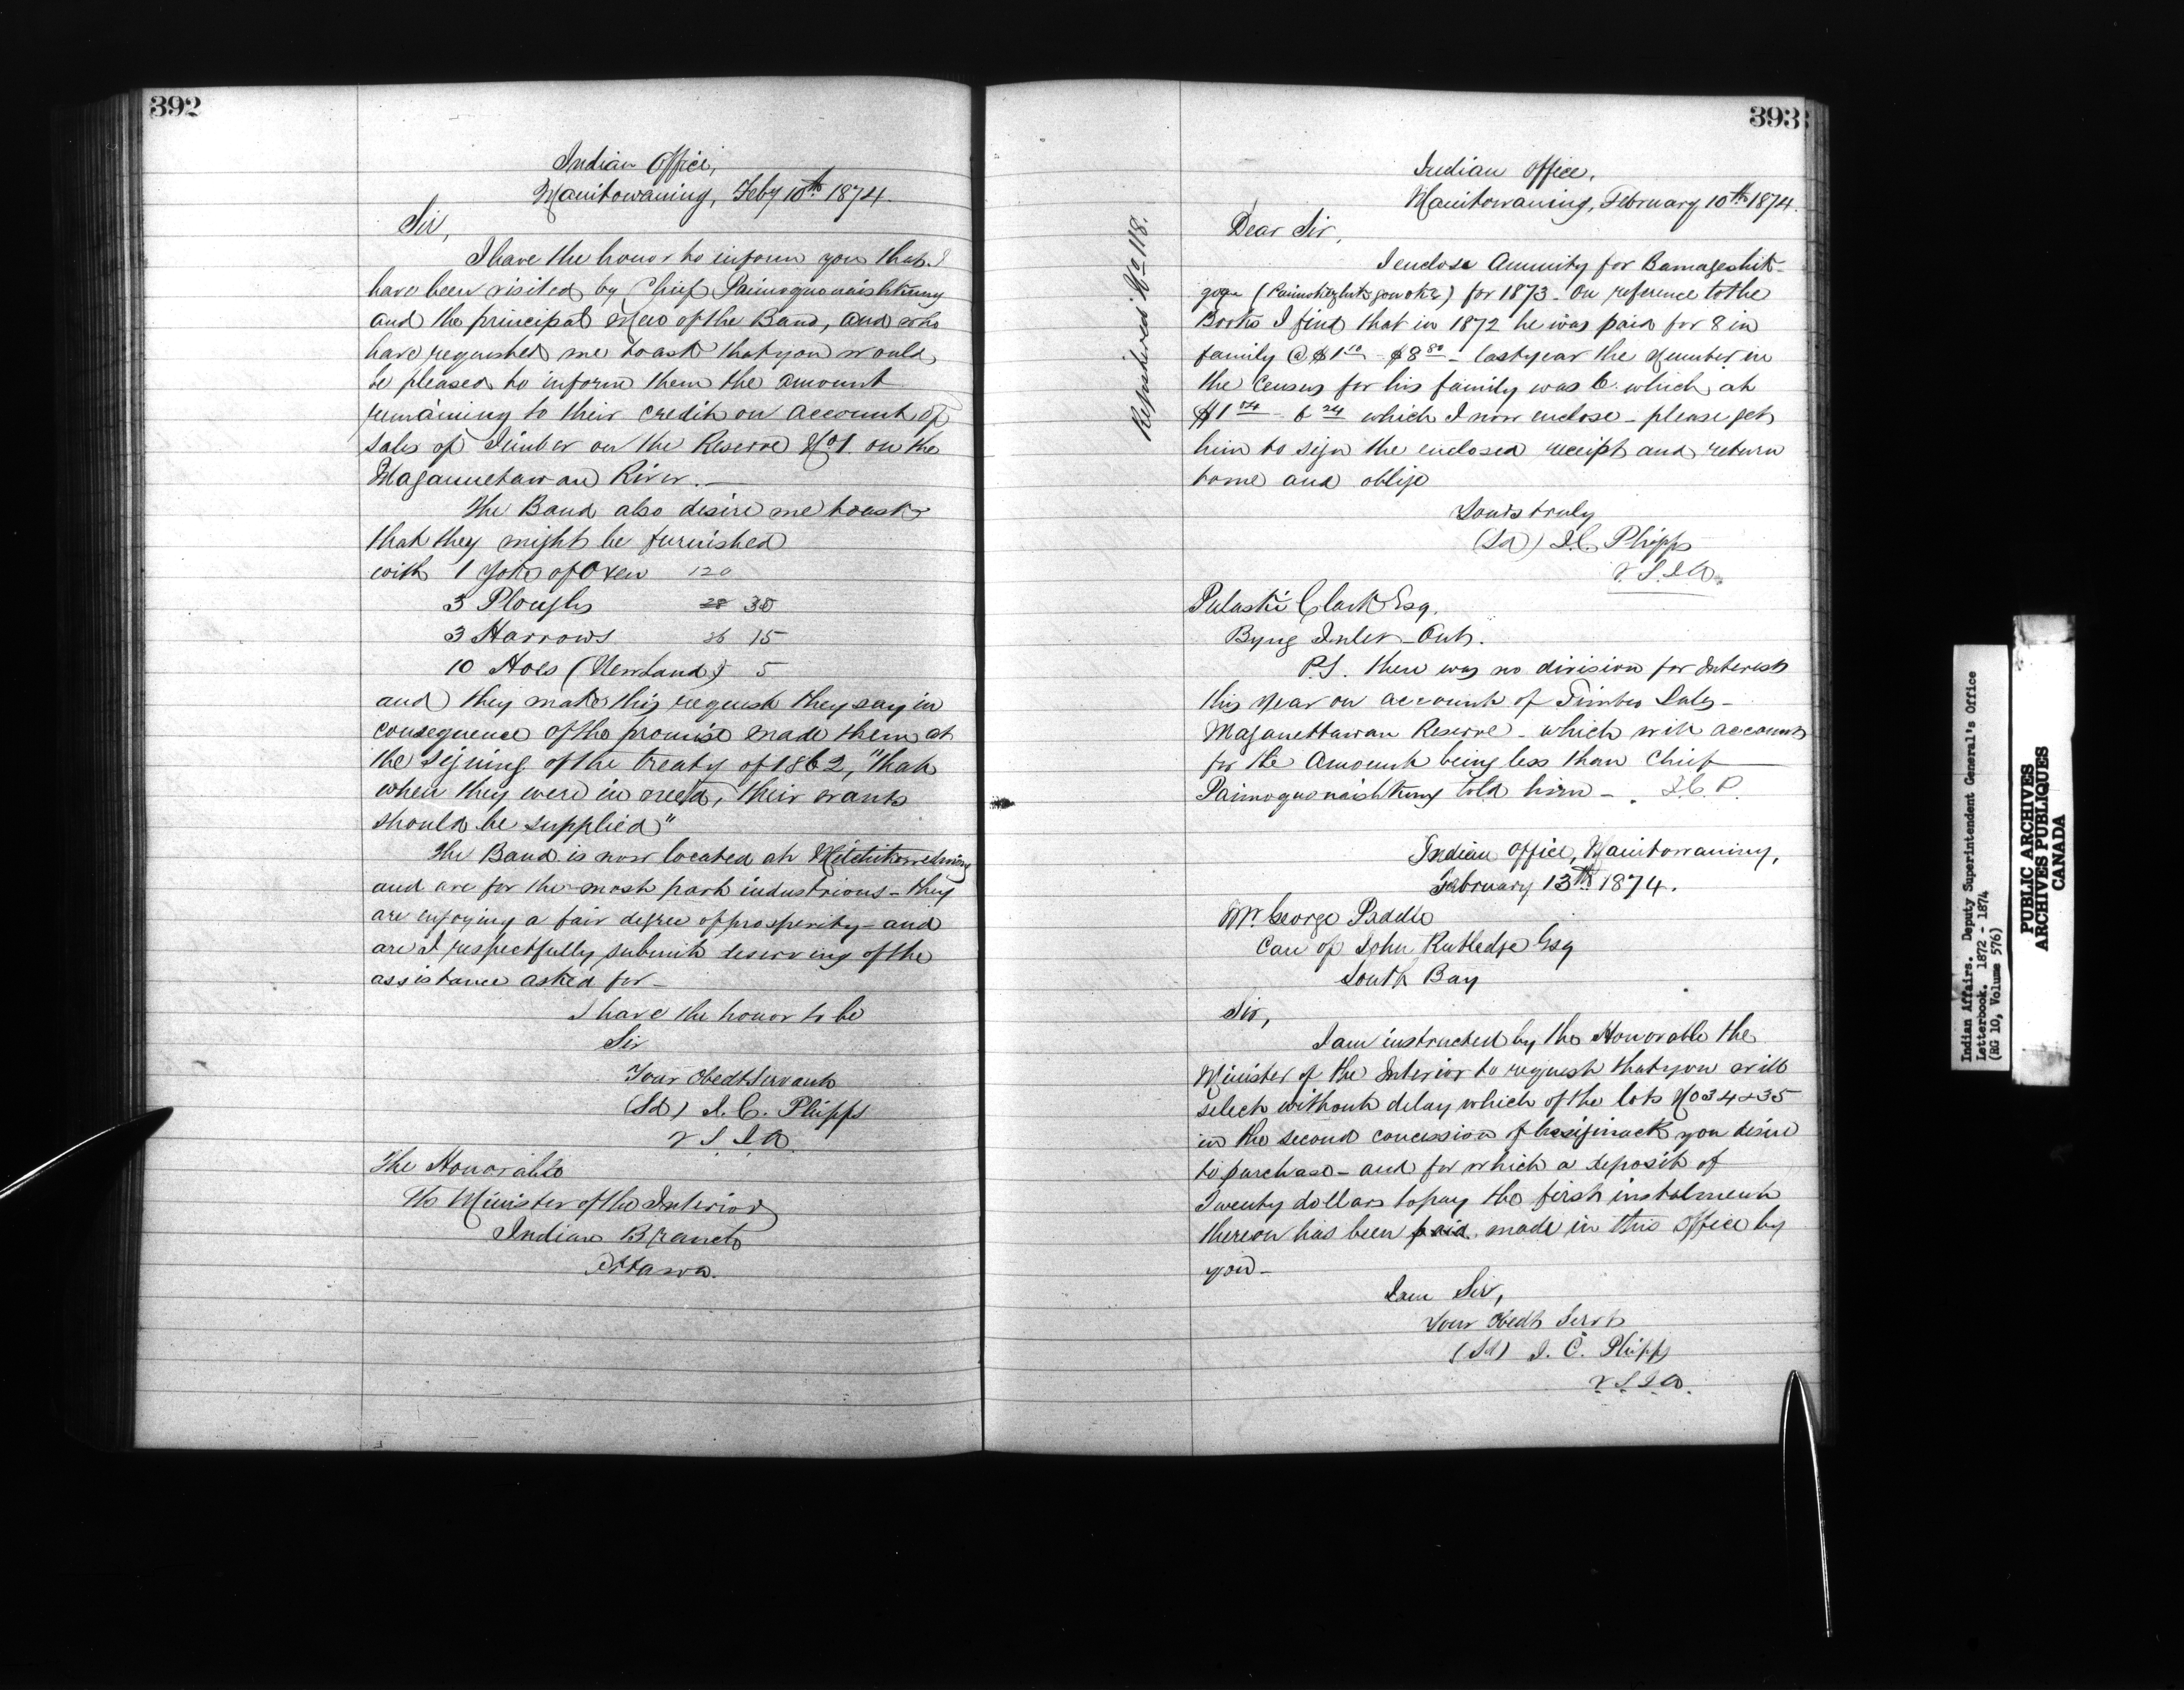 392
Indian Office,
Manitowaning, Feby 10th 1874.
Sir,
I have the honor to inform you that I
have been visited by Chief Paimoquonaishkung
and the principal Men of the Band, and who
have requested me to ask that you would
be pleased to inform them the amount
remaining to their credit on account of
sales of Timber on the Reserve No 1. on the
Magannetawan River. —
The Band also desire me to ask
that they might be furnished
with 1 Yoke of Oxen 120
3 Ploughs 28 30
3 Harrows 26 15
10 Hoes (Newland) 5
and they make this request they say in
consequence of the promise made them at
the signing of the treaty of 1862, "that
when they were in need, their wants
should be supplied"
The Band is now located at
and are for the most part industrious - they
are enjoying a fair degree of prosperity - and
are I respectfully submit deserving of the
assistance asked for -
I have the honor to be
Sir
Your Obedt Servant
(Sd) J. C. Phipps
V. S. I. A.
The Honorable
The Minister of the Interior
Indian Branch
Ottawa.
393
Registered No 118.
Indian Office,
Manitowaning, February 10th 1874.
Dear Sir,
I enclose Annuity for Bamageshik-
for 1873 - On reference to the
Books I find that in 1872 he was paid for 8 in
family @ $1 10 - $8 80 - last year the Number in
the Census for his family was 6 which at
$1 04 - 6 24 which I now enclose - please get
him to sign the enclosed receipt and return
to me and oblige
Yours truly
(Sd) J. C. Phipps
V. S. I. A.
Pulaski Clark Esq.
Byng Inlet Ont.
P.S. there was no division for Interest
this Year on account of Timber Sales -
Maganettawan Reserve - which will account
for the Amount being less than Chief
Paimoquonaishkung told him - J. C. P.
Indian Office, Manitowaning,
February 13th 1874.
Mr. George
Care of John Rutledge Esq
South Bay
Sir,
I am instructed by the Honorable the
Minister of the Interior to request that you will
select without delay which of the lots No 34 & 35
in the second concession of Assiginack you desire
to purchase - and for which a deposit of
Twenty dollars to pay the first instalment
thereon has been paid. made in this Office by
you -
I am Sir,
Your Obedt Servt
(Sd) J. C. Phipps
V. S. I. A.
Indian Affairs. Deputy Superintendent General's Office
Letterbook. 1872 - 1874
(RG 10, Volume 576)
PUBLIC ARCHIVES
ARCHIVES PUBLIQUES
CANADA